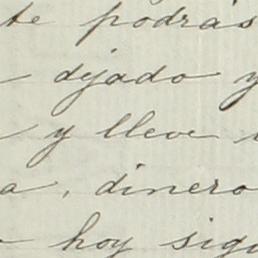 te podrás
dejado y
y lleve
a, dinero
hoy sigu